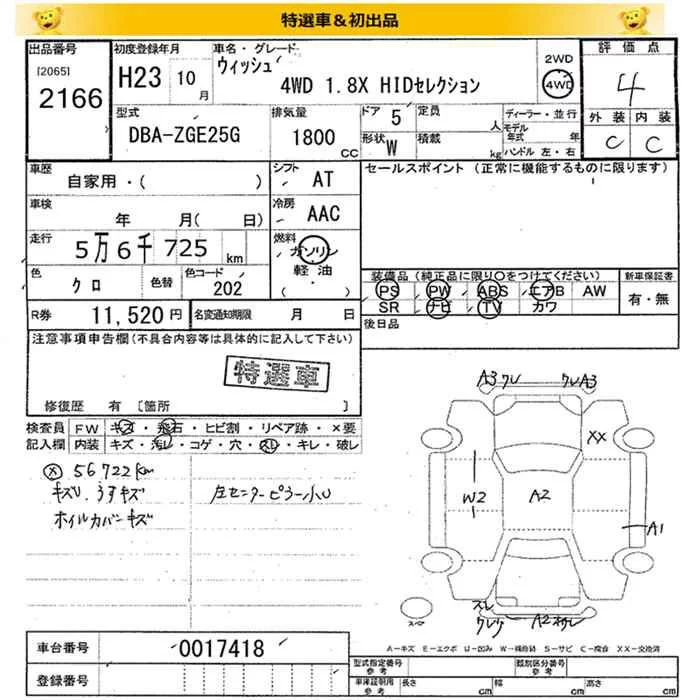 特選車＆初出品
出品番号
[2065]
2166
初度登録年月
H23 10月
車名・グレード
ウィッシュ
4WD 1.8X HIDセレクション
2WD
4WD
評価点
4
外装 内装
C C
型式
DBA-ZGE25G
排気量
1800 CC
ドア 5
定員 人
形状 W
積載 kg
ディーラー・並行
モデル年式 年
ハンドル 左・右
車歴
自家用・( )
シフト AT
車検
年 月( 日)
冷房 AAC
走行
5万6千725 km
燃料
ガソリン
軽油・
( )
色 クロ
色替
色コード 202
R券 11,520円
名変通知期限 月 日
セールスポイント (正常に機能するものに限ります)
装備品 (純正品に限り○をつけてください)
PS PW ABS エアB AW
SR ナビ TV カワ
新車保証書
有・無
後日品
注意事項申告欄(不具合内容等は具体的に記入して下さい)
特選車
修復歴 有 [箇所 ]
検査員記入欄
FW キズ・飛石・ヒビ割・リペア跡・×要
内装 キズ・汚レ・コゲ・穴・スレ・キレ・破レ
56722km
キズU、うすキズ
左センターピラー小U
ホイルカバーキズ
A3 ワレ ワレ A3
XX
W2
A2
A1
スレ
A2
スペ
A-キズ E-エクボ U-凹み W-補修跡 S-サビ C-腐食 XX-交換済
車台番号 0017418
登録番号
型式指定番号 参考
類別区分番号 参考
車庫証明用 参考
長さ cm 幅 cm 高さ cm